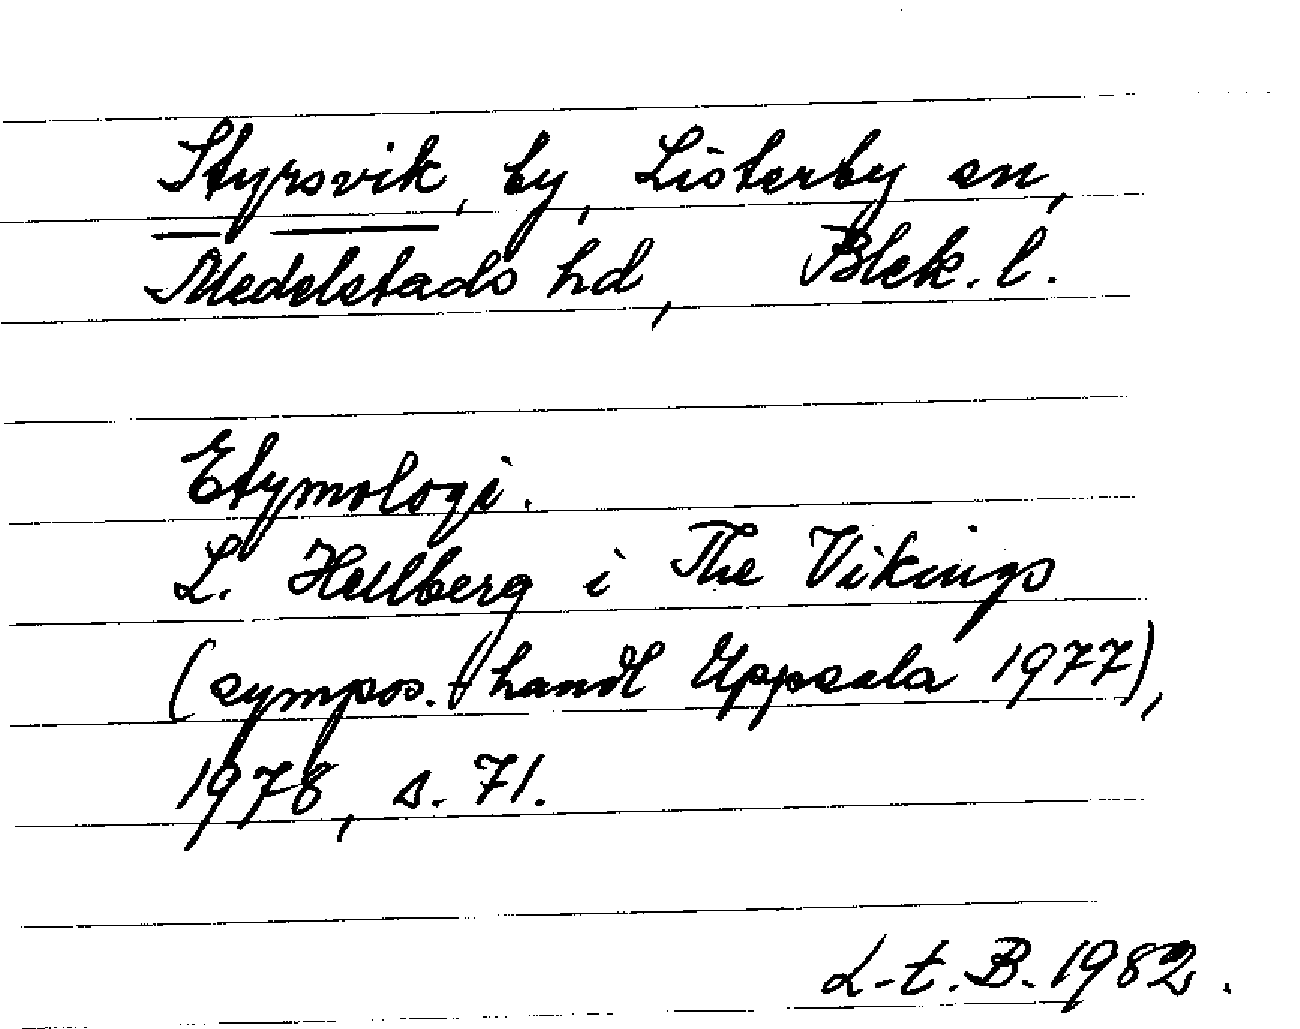 Styrsvik, by, Listerby sn,
Medelstads hd, Blek. l.
Etymologi.
L. Hellberg i The Vikings
(sympos. handl Uppsala 1977),
1978, s. 71.
L-t. B. 1982.